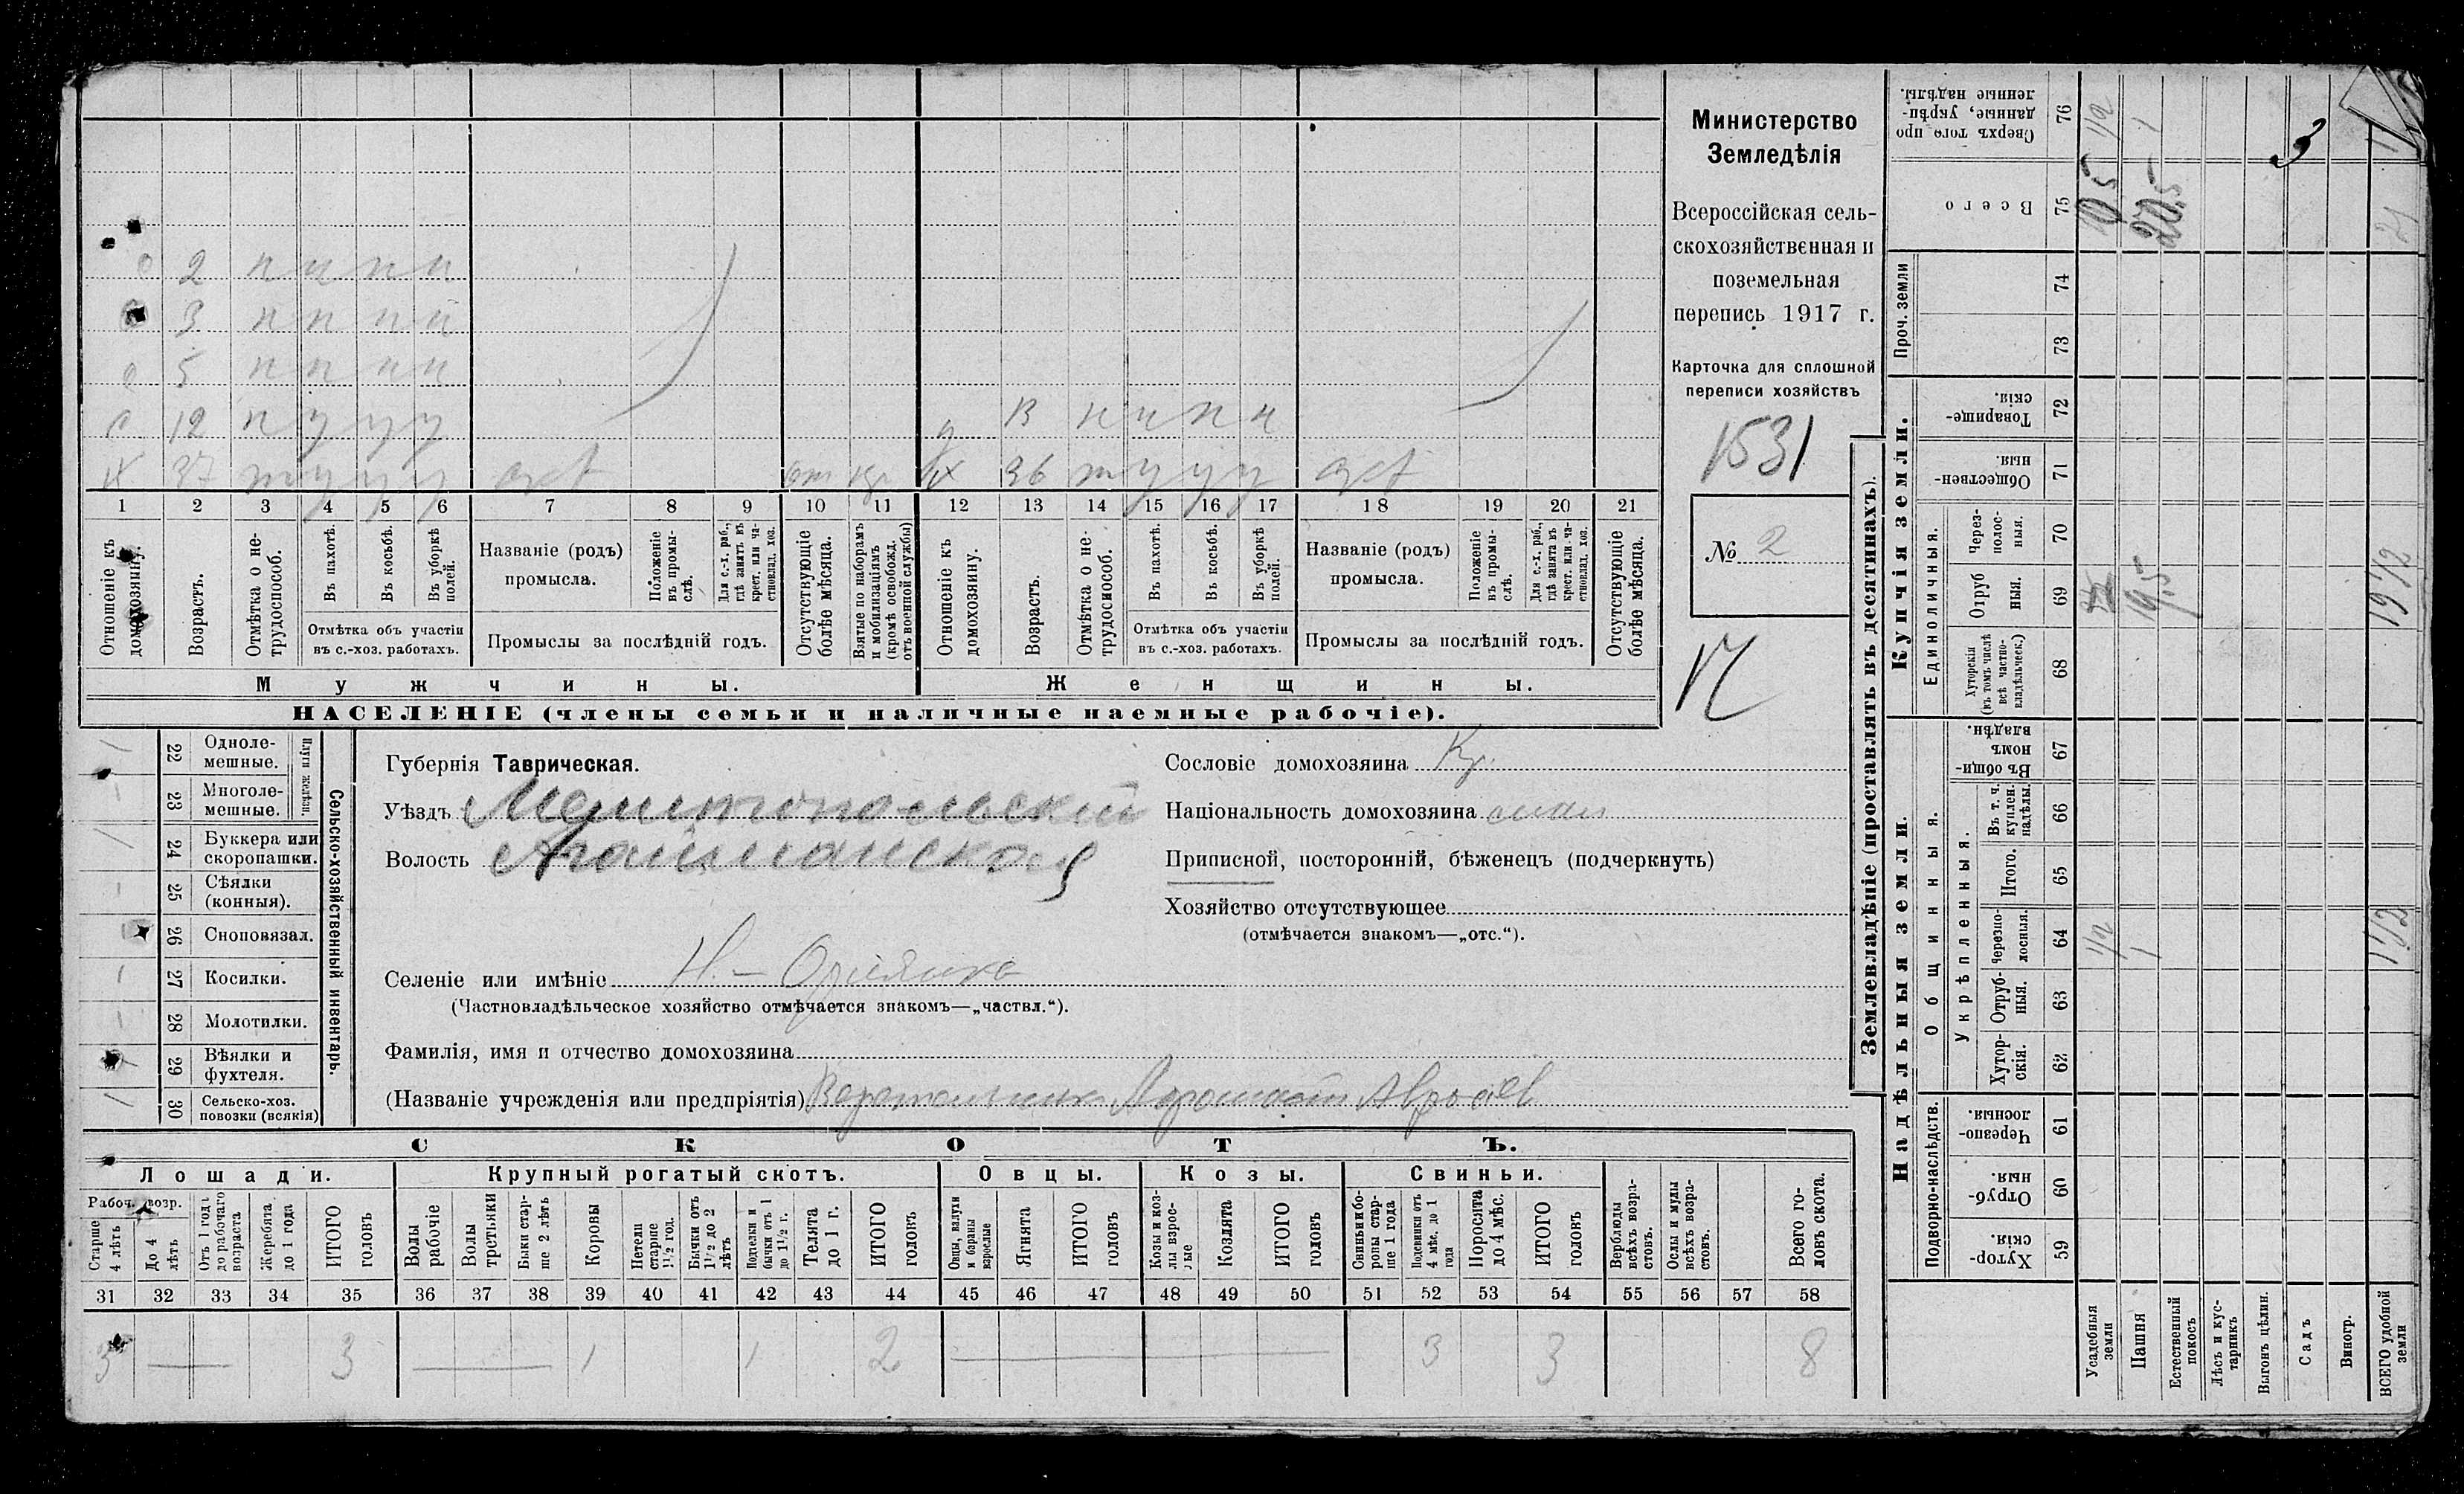 2 н н н н
3 н н н н
5 н н н н
12 н у у у
13 н н н н
37 у у у
36 у у у
1 2 3 4 5 6 7 8 9 10 11 12 13 14 15 16 17 18 19 20 21
Отношеніе къ домохозяину.
Возрастъ.
Отмѣтка о не-
трудоспособ.
Въ пахотѣ.
Въ косьбѣ.
Въ уборкѣ
полей.
Отмѣтка объ участіи
въ с.-хоз. работахъ.
Названіе (родъ)
промысла.
Положеніе
въ промы-
слѣ.
Для с.-х. раб.,
гдѣ занятъ въ
крест. или ча-
стновлад. хоз.
Промыслы за послѣдній годъ.
Отсутствующіе
болѣе мѣсяца.
Взятые по наборамъ
и мобилизаціямъ
(кромѣ освобожд.
отъ военной службы)
Отношеніе къ
домохозяину.
Возрастъ.
Отмѣтка о не-
трудоспособ.
Въ пахотѣ.
Въ косьбѣ.
Въ уборкѣ
полей.
Отмѣтка объ участіи
въ с.-хоз. работахъ.
Названіе (родъ)
промысла.
Положеніе
въ промы-
слѣ.
Для с.-х. раб.,
гдѣ занята въ
крест. или ча-
стновлад. хоз.
Промыслы за послѣдній годъ.
Отсутствующіе
болѣе мѣсяца.
Мужчины.
Женщины.
НАСЕЛЕНІЕ (члены семьи и наличные наемные рабочіе).
Министерство
Земледѣлія
Всероссійская сель-
скохозяйственная и
поземельная
перепись 1917 г.
Карточка для сплошной
переписи хозяйствъ
1531
№ 2
22 Одноле-
мешные.
23 Многоле-
мешные.
Плуги желѣзн.
24 Буккера или
скоропашки.
25 Сѣялки
(конныя).
26 Сноповязал.
27 Косилки.
28 Молотилки.
29 Вѣялки и
фухтеля.
30 Сельско-хоз.
повозки (всякія)
Сельско-хозяйственный инвентарь.
Губернія Таврическая.
Уѣздъ Мелитопольскій
Волость Агайманская
Селеніе или имѣніе
(Частновладѣльческое хозяйство отмѣчается знакомъ—„частвл.“).
Фамилія, имя и отчество домохозяина
(Названіе учрежденія или предпріятія)
Сословіе домохозяина Кр.
Національность домохозяина
Приписной, посторонній, бѣженецъ (подчеркнуть)
Хозяйство отсутствующее
(отмѣчается знакомъ—„отс.“).
СКОТЪ.
Лошади. Крупный рогатый скотъ. Овцы. Козы. Свиньи.
Рабоч. возр.
Старше
4 лѣтъ
До 4
лѣтъ
Отъ 1 года
до рабочаго
возраста
Жеребята
до 1 года
ИТОГО
головъ
Волы
рабочіе
Волы
третьяки
Быки стар-
ше 2 лѣтъ
Коровы
Нетели
старше
1½ год.
Бычки отъ
1½ до 2
лѣтъ
Подтелки и
бычки отъ 1
до 1½ г.
Телята
до 1 г.
ИТОГО
головъ
Овцы, валухи
и бараны
взрослые
Ягнята
ИТОГО
головъ
Козы и коз-
лы взрос-
лые
Козлята
ИТОГО
головъ
Свиньи и бо-
ровы стар-
ше 1 года
Подсвинки отъ
4 мѣс. до 1
года
Поросята
до 4 мѣс.
ИТОГО
головъ
Верблюды
всѣхъ возра-
стовъ.
Ослы и мулы
всѣхъ возра-
стовъ.
Всего го-
ловъ скота.
31 32 33 34 35 36 37 38 39 40 41 42 43 44 45 46 47 48 49 50 51 52 53 54 55 56 57 58
3 — 3 — 1 1 2 — 3 3 8
Землевладѣніе (проставлять въ десятинахъ).
Купчія земли.
Надѣльныя земли.
Сверхъ того про
данные, укрѣп-
ленные надѣлы.
76
Всего
75
Проч. земли
74
73
Товарище-
скія.
72
Обществен-
ныя.
71
Единоличныя.
Через-
полос-
ныя.
70
Отруб
ныя.
69
Хуторскія
(въ томъ числѣ
всѣ частно-
владѣльческ.)
68
Общинныя.
Въ общи-
номъ
владѣн.
67
Укрѣпленныя.
Въ т. ч.
куплен.
надѣлы.
66
Итого.
65
Черезпо-
лосныя.
64
Отруб-
ныя.
63
Хутор-
скія.
62
Подворно-наслѣдств.
Черезпо-
лосныя.
61
Отруб-
ныя.
60
Хутор-
скія.
59
Усадебныя
земли
Пашня
Естественный
покосъ
Лѣсъ и кус-
тарникъ
Выгонъ цѣлин.
Садъ
Виногр.
ВСЕГО удобной
земли
1/2
1
20,5
3
21
19,5
19 1/2
1/2
1
1 1/2